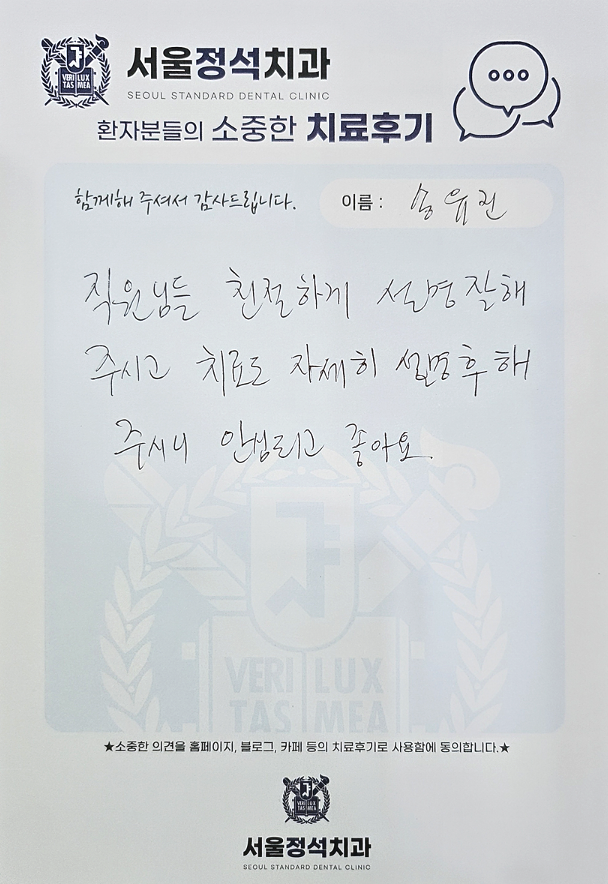 서울정석치과
SEOUL STANDARD DENTAL CLINIC
환자분들의 소중한 치료후기
함께해 주셔서 감사드립니다.
이름 : 송유진
직원님들 친절하게 설명잘해
주시고 치료도 자세히 설명후 해
주시니 안심되고 좋아요.
VERI LUX
TAS MEA
★소중한 의견을 홈페이지, 블로그, 카페 등의 치료후기로 사용함에 동의합니다.★
서울정석치과
SEOUL STANDARD DENTAL CLINIC